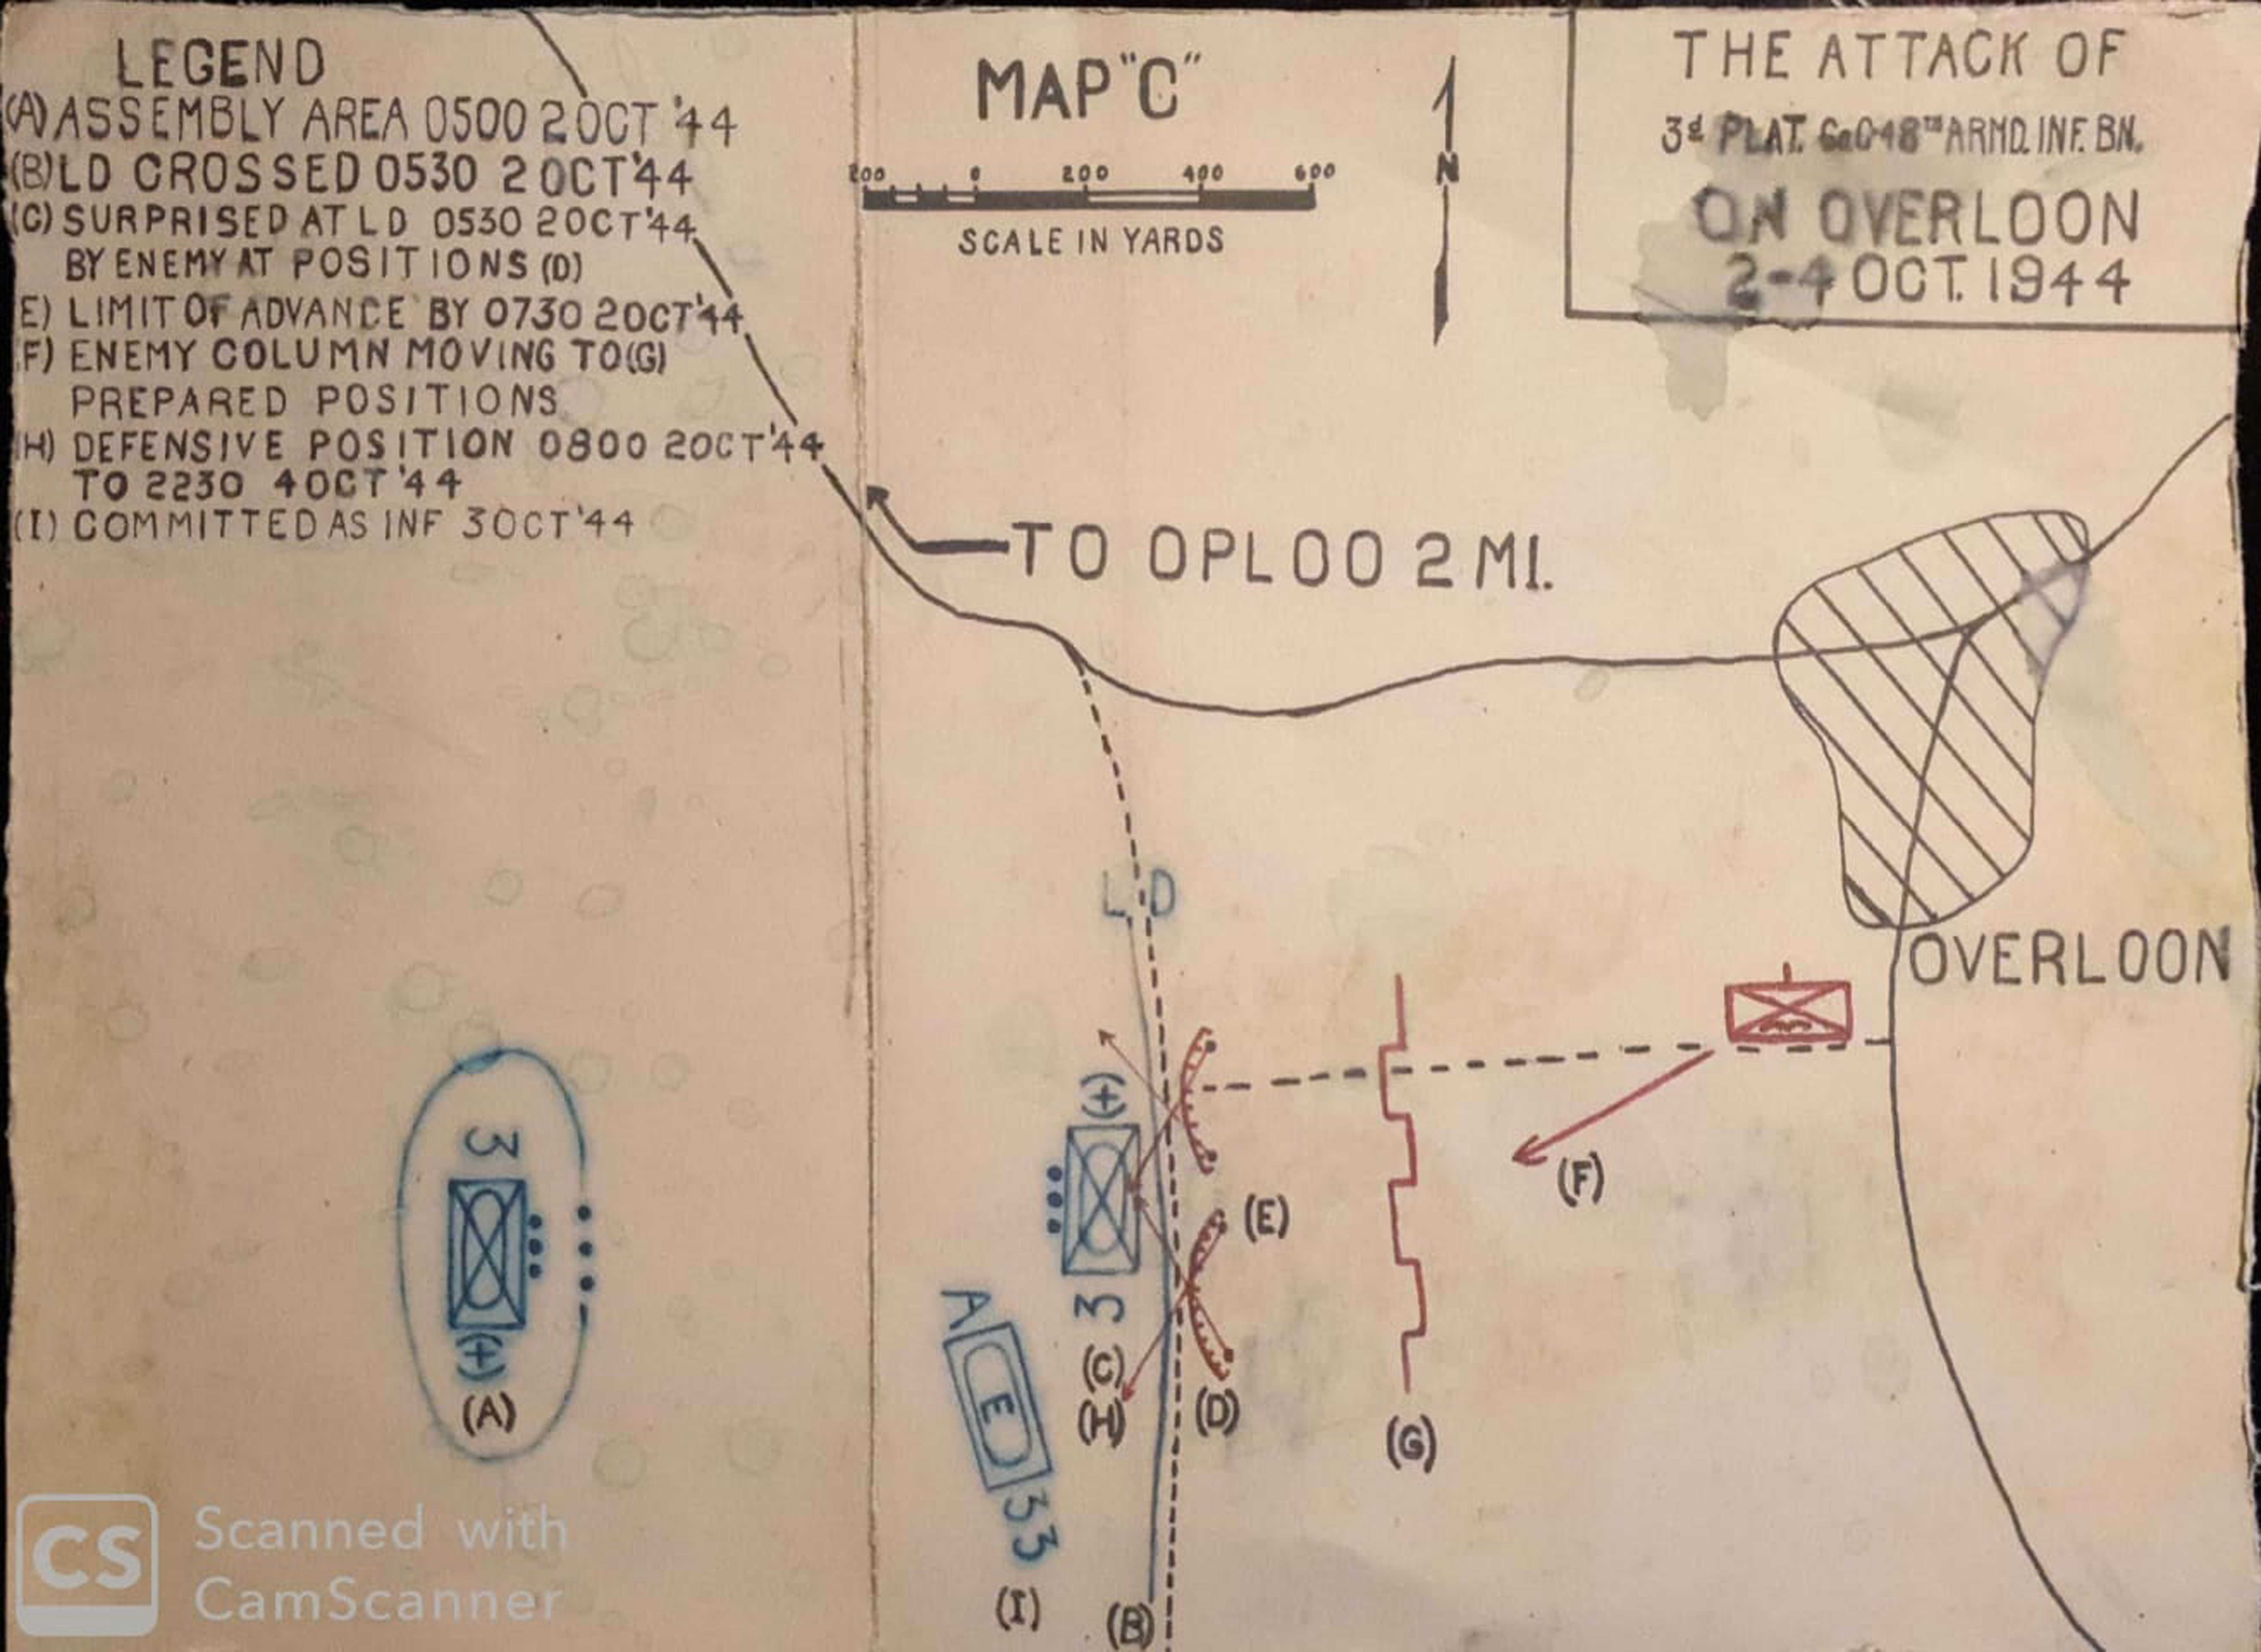 LEGEND
(A) ASSEMBLY AREA 0500 2 OCT '44
(B) LD CROSSED 0530 2 OCT '44
(C) SURPRISED AT LD 0530 2 OCT '44
BY ENEMY AT POSITIONS (D)
E) LIMIT OF ADVANCE BY 0730 2 OCT '44
F) ENEMY COLUMN MOVING TO (G)
PREPARED POSITIONS
H) DEFENSIVE POSITION 0800 2 OCT '44
TO 2230 4 OCT '44
(I) COMMITTED AS INF 3 OCT '44
MAP "C"
200 0 200 400 600
SCALE IN YARDS
N
THE ATTACK OF
3d PLAT. Co C 48TH ARMD. INF. BN.
ON OVERLOON
2-4 OCT. 1944
TO OPLOO 2 MI.
LD
OVERLOON
3
(+)
(A)
(+)
3
(C)
(H)
(D)
(E)
(F)
(G)
A
E
33
(I)
(B)
CS
Scanned with
CamScanner